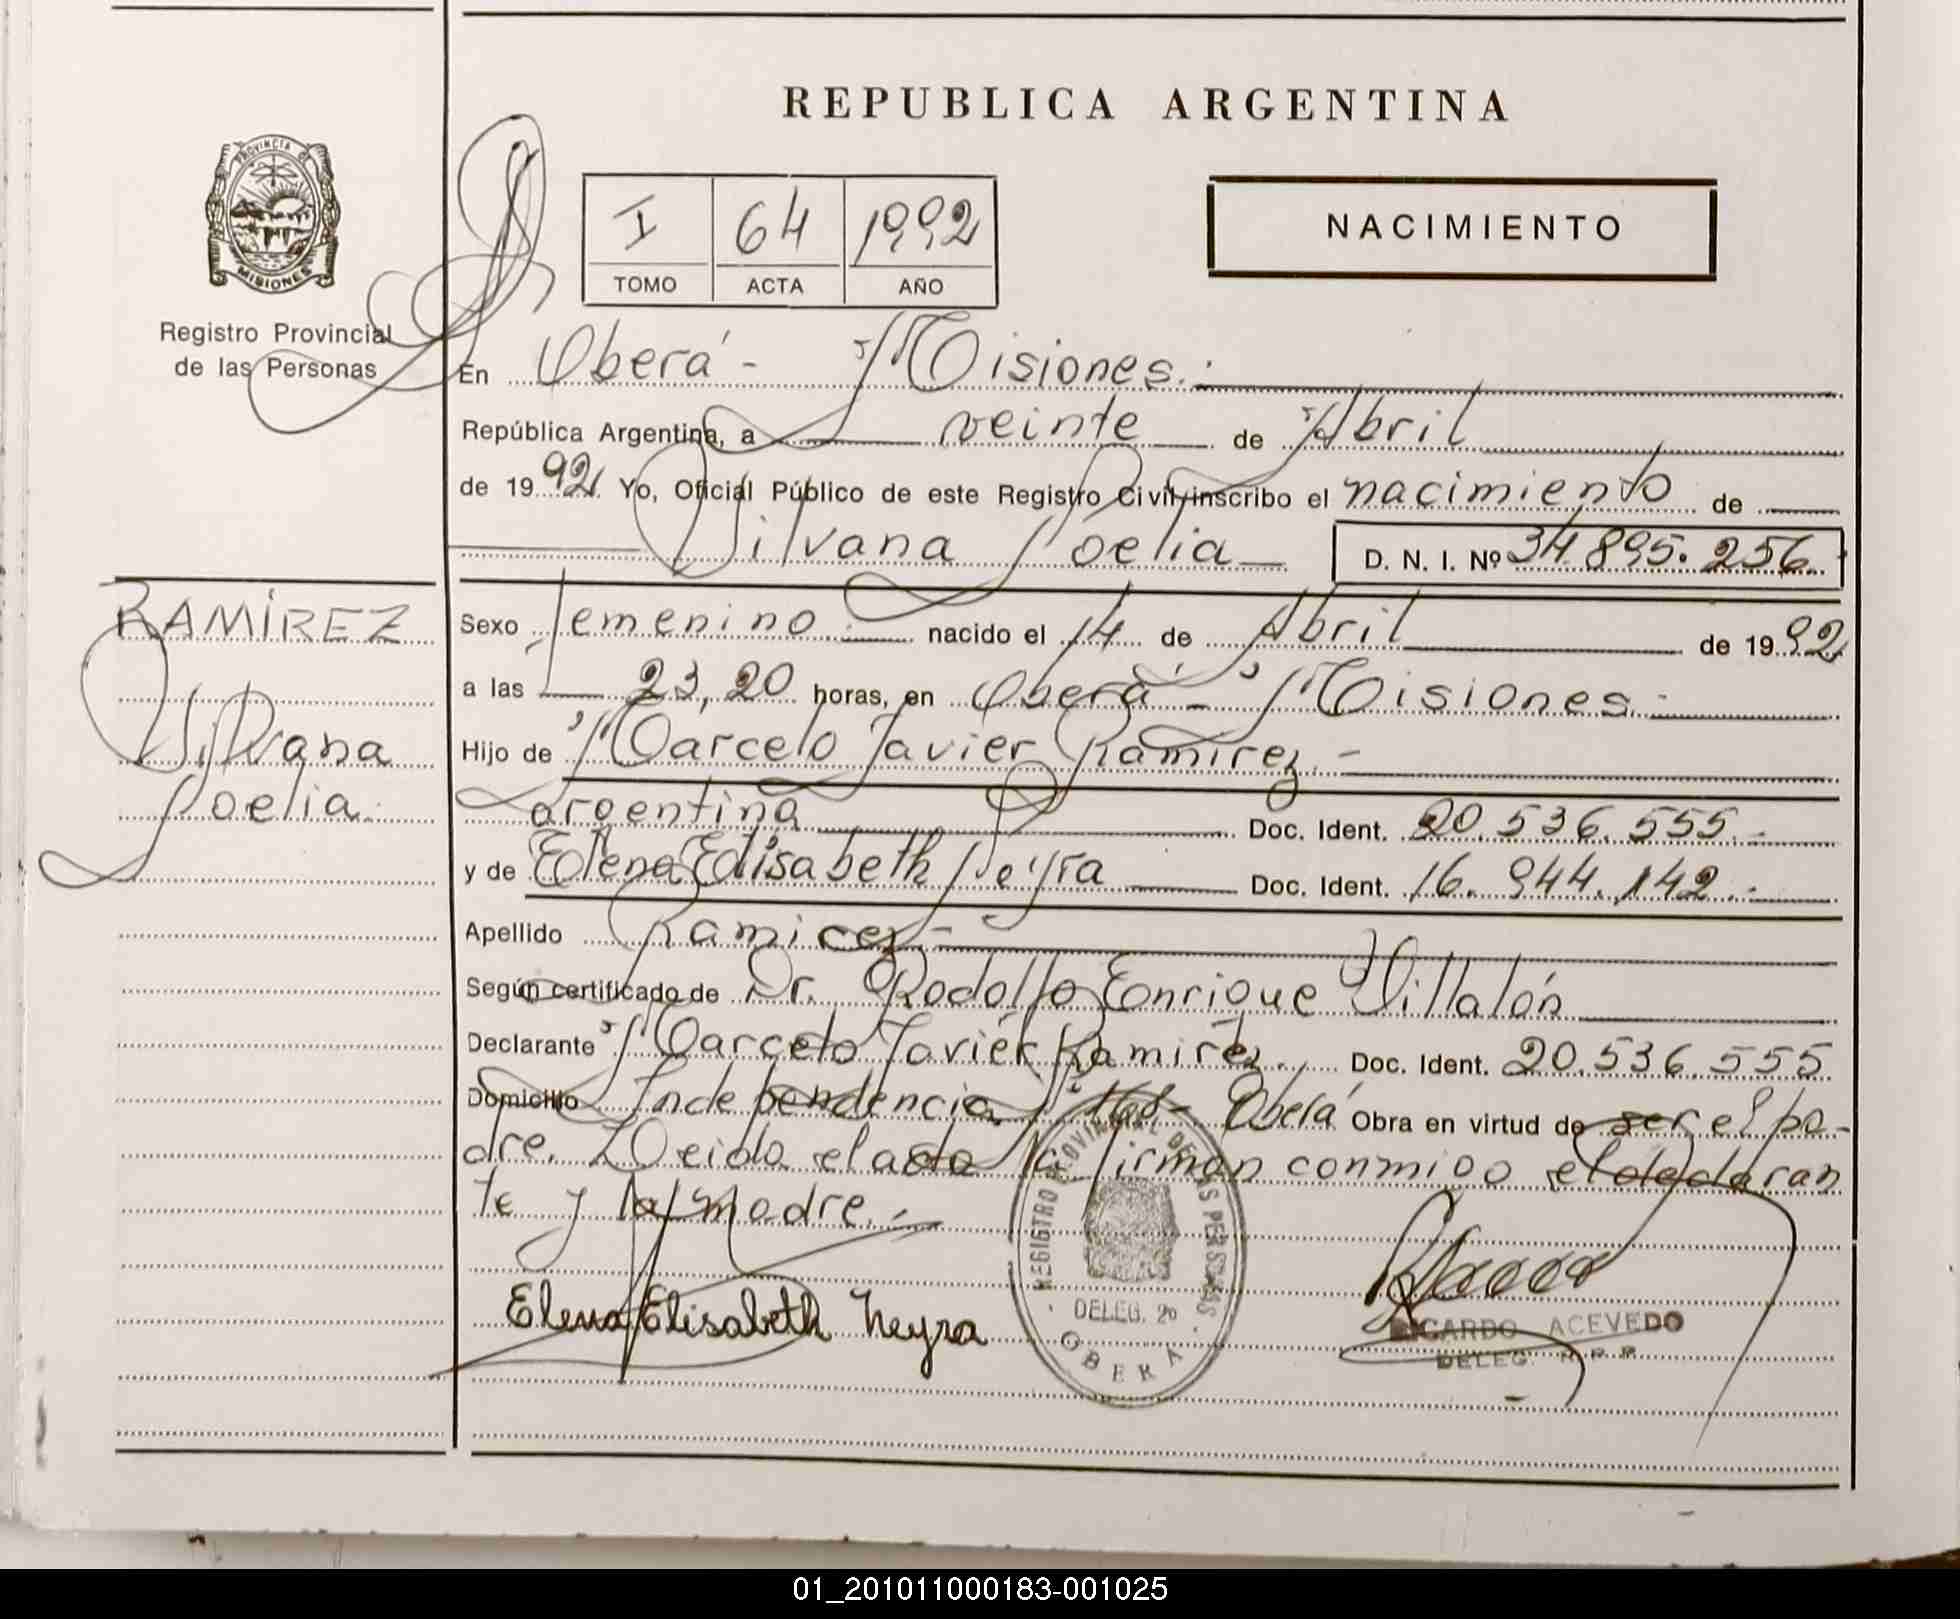 REPUBLICA ARGENTINA
PROVINCIA DE
MISIONES
Registro Provincial
de las Personas
I 64 1992
TOMO ACTA AÑO
NACIMIENTO
En Oberá - Misiones.
República Argentina, a veinte de Abril
de 1992 Yo, Oficial Público de este Registro Civil, inscribo el nacimiento de
Silvana Noelia D. N. I. Nº 34.895.256
RAMÍREZ
Silvana
Noelia
Sexo femenino nacido el 14 de Abril de 1992
a las 23,20 horas, en Oberá - Misiones.
Hijo de Marcelo Javier Ramirez.-
argentina Doc. Ident. 20.536.555.-
y de Elena Elisabeth Neyra Doc. Ident. 16.944.142.-
Apellido Ramirez.-
Según certificado de Dr. Rodolfo Enrique Villalón
Declarante Marcelo Javiér Ramirez. Doc. Ident. 20.536.555
Domicilio Independencia Oberá Obra en virtud de ser el pa-
dre. Leida el acta la firman conmigo el declaran
te y la madre.-
Elena Elisabeth Neyra
REGISTRO PROVINCIAL DE LAS PERSONAS
DELEG. 20
OBERA
RICARDO ACEVEDO
DELEG. R.P.P.
01_201011000183-001025